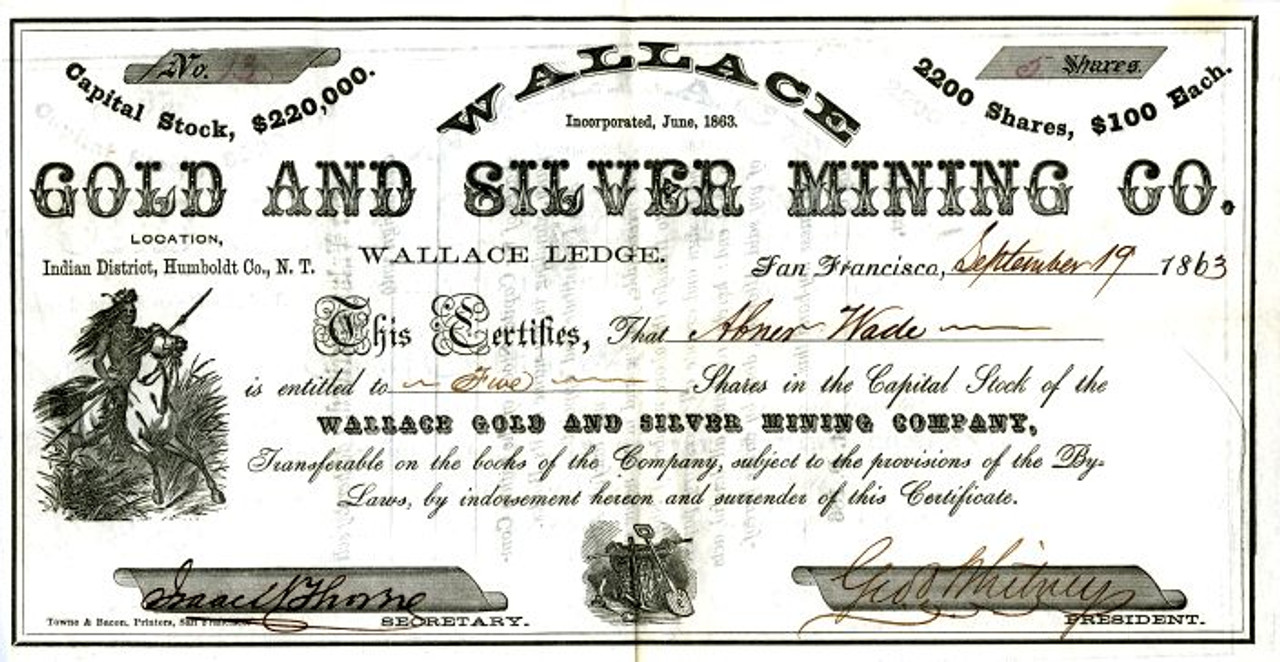 No. 13
Capital Stock, $220,000.
WALLACE
Incorporated, June, 1863.
5 Shares.
2200 Shares, $100 Each.
GOLD AND SILVER MINING CO.
LOCATION,
Indian District, Humboldt Co., N. T.
WALLACE LEDGE.
San Francisco, September 19 1863
This Certifies, That Abner Wade
is entitled to Five Shares in the Capital Stock of the
WALLACE GOLD AND SILVER MINING COMPANY,
Transferable on the books of the Company, subject to the provisions of the By-
Laws, by indorsement hereon and surrender of this Certificate.
Isaac N Thorne
SECRETARY.
Geo B Whitney
PRESIDENT.
Towne & Bacon, Printers, San Francisco